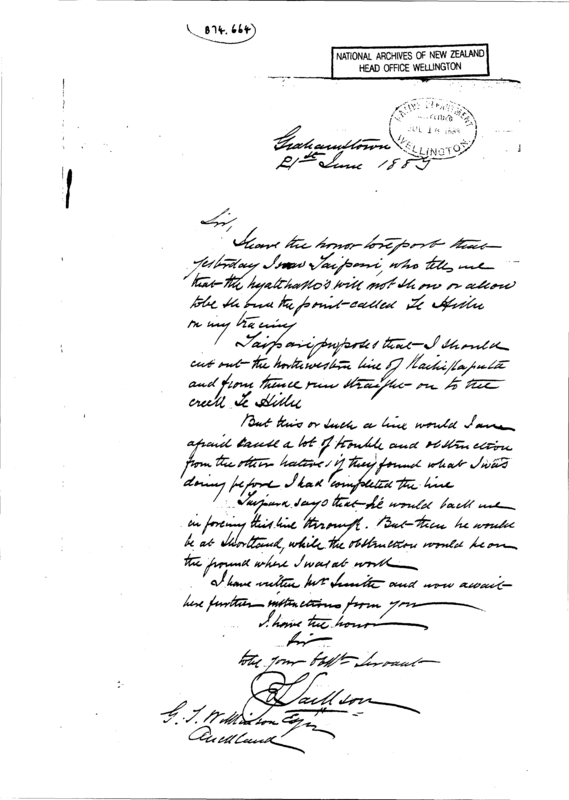 874.664
NATIONAL ARCHIVES OF NEW ZEALAND
HEAD OFFICE WELLINGTON
NATIVE DEPARTMENT
WELLINGTON
Grahamstown
21st June 188
Sir,
I have the honor to report that
yesterday I saw Taipari, who tells me
that the will not show or allow
to be shewn the point called Te Hihi
on my tracing
Taipari proposes that I should
cut out the northwestern line of
and from thence run straight on to the
creek Te Hihi
But this or such a line would I am
afraid cause a lot of trouble and obstruction
from the other natives if they found what I was
doing before I had completed the line
Taipari says that he would back me
in forcing this line through. But then he would
be at Shortland, while the obstruction would be on
the ground where I was at work
I have written Mr Smith and now await
here further instructions from you
I have the honor
Sir
to be your obdt Servant
Jackson
G. T. Wilkinson Esqr
Auckland